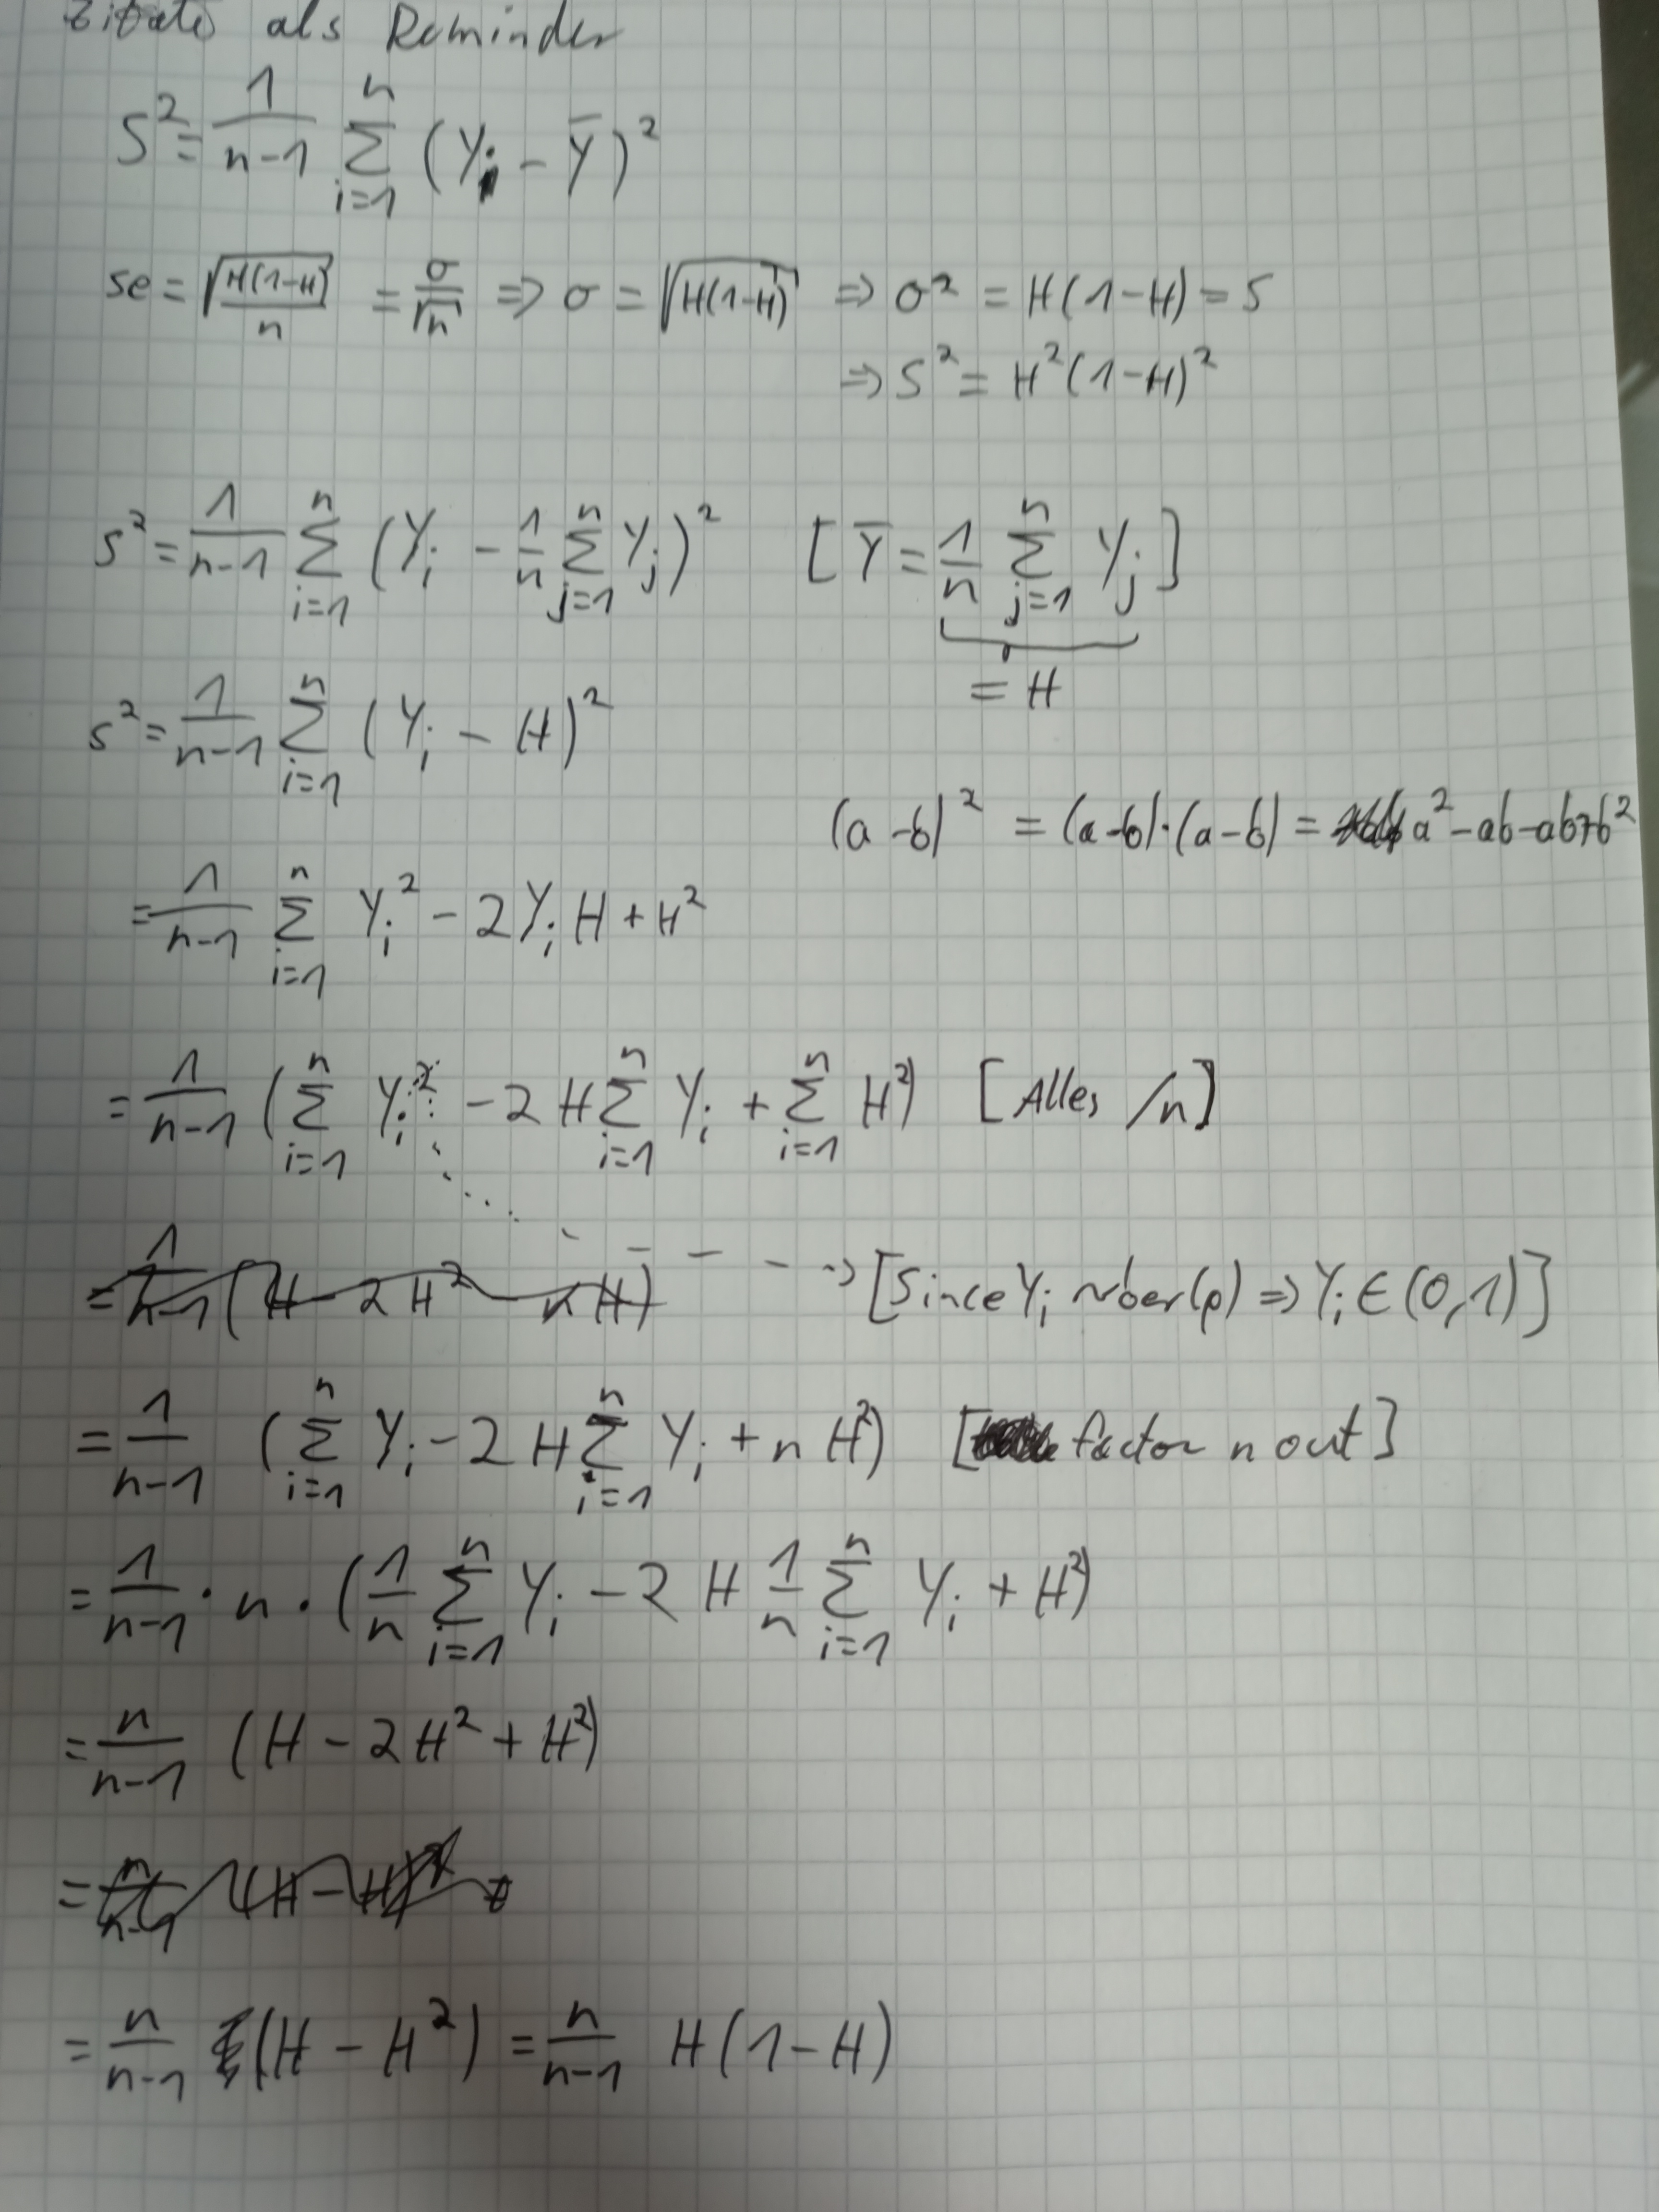 als Reminder
S² = 1/(n-1) Σ_{i=1}^{n} (Y_i - Ȳ)²
se = √(H(1-H)/n) = σ/√n ⇒ σ = √(H(1-H)) ⇒ σ² = H(1-H) = S
⇒ S² = H²(1-H)²
s² = 1/(n-1) Σ_{i=1}^{n} (Y_i - 1/n Σ_{j=1}^{n} Y_j)² [Ȳ = 1/n Σ_{j=1}^{n} Y_j]
= H
s² = 1/(n-1) Σ_{i=1}^{n} (Y_i - H)²
(a-b)² = (a-b)·(a-b) = a² - ab - ab + b²
= 1/(n-1) Σ_{i=1}^{n} Y_i² - 2Y_i H + H²
= 1/(n-1) (Σ_{i=1}^{n} Y_i² - 2 H Σ_{i=1}^{n} Y_i + Σ_{i=1}^{n} H²) [Alles /n]
= 1/(n-1) (H - 2H² - nH) → [Since Y_i ~ber(p) ⇒ Y_i ∈ (0,1)]
= 1/(n-1) (Σ_{i=1}^{n} Y_i - 2 H Σ_{i=1}^{n} Y_i + n H²) [factor n out]
= 1/(n-1) · n · (1/n Σ_{i=1}^{n} Y_i - 2 H 1/n Σ_{i=1}^{n} Y_i + H²)
= n/(n-1) (H - 2H² + H²)
= n/(n-1) (H - H²) = n/(n-1) H(1-H)